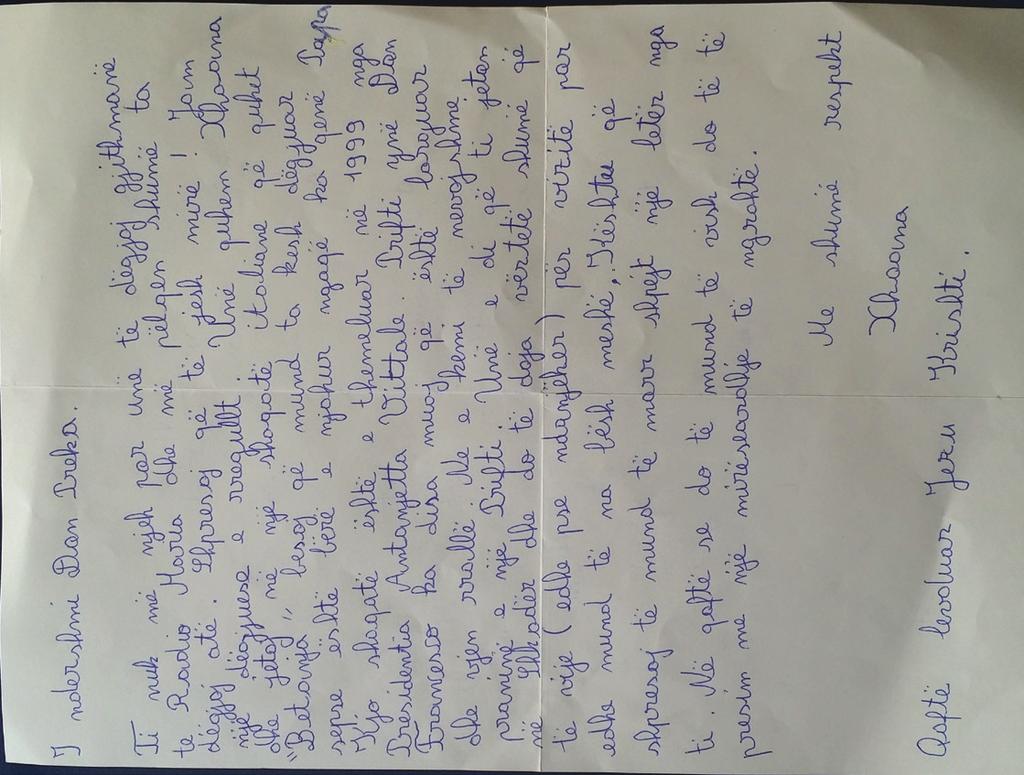 I ndershmi Don Preka.
Ti nuk më njeh por unë të dëgjoj gjithmonë
te Radio Maria dhe më pëlqen shumë ta
dëgjoj atë. Shpresoj që të jesh mirë! Jam
një dëgjuese e rregullt Unë quhem Xhovana
dhe jetoj në një shoqatë italiane që quhet
"Betania" besoj që mund ta kesh dëgjuar
sepse është bërë e njohur ngaqë ka qenë Papa
Kjo shoqatë është e themeluar në 1999 nga
Presidentia Antonjetta Vittale. Prifti ynë Don
Francesco ka disa muaj që është larguar
dhe vjen rrallë. Ne e kemi të nevojshme
praninë e një Prifti. Unë e di që ti jeton
në Shkodër dhe do të doja vërtetë shumë që
të vije (edhe pse ndonjëher) për vizitë por
edhe mund të na bësh meshë. Kështu që
shpresoj të mund të marr shpejt një letër nga
ti. Në qoftë se do të mund të vish do të të
presim me një mirëseardhje të ngrohtë.
Me shumë respekt
Xhovana
Qoftë levduar Jezu Krishti.